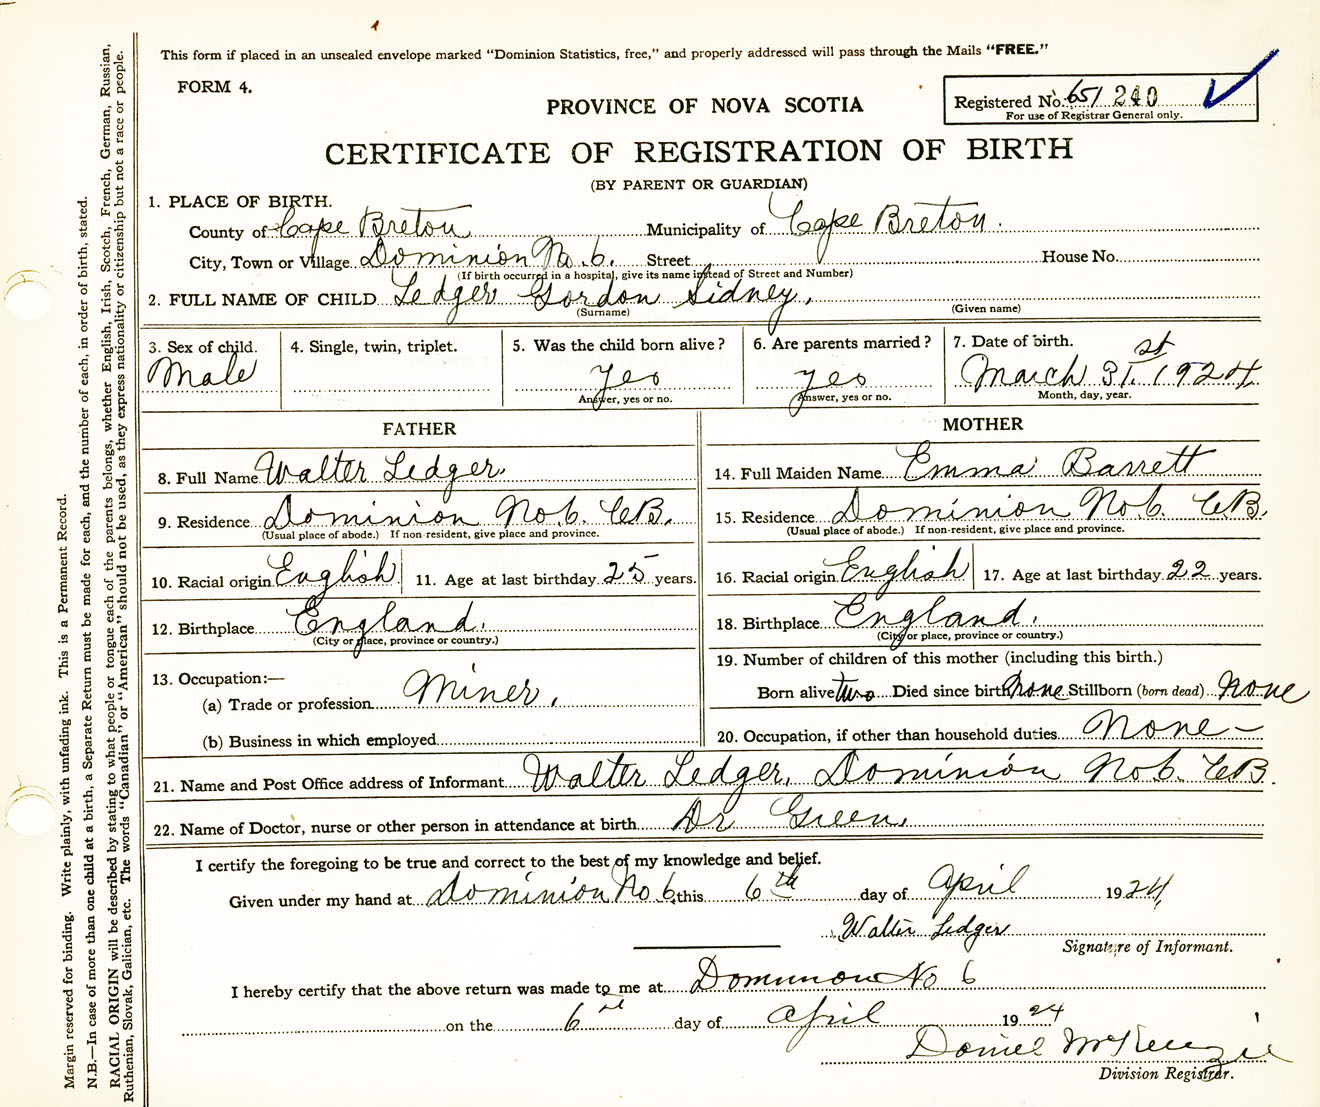 This form if placed in an unsealed envelope marked "Dominion Statistics, free," and properly addressed will pass through the Mails "FREE."
FORM 4.
Registered No. 651 240
For use of Registrar General only.
PROVINCE OF NOVA SCOTIA
CERTIFICATE OF REGISTRATION OF BIRTH
(BY PARENT OR GUARDIAN)
1. PLACE OF BIRTH.
County of Cape Breton Municipality of Cape Breton.
City, Town or Village Dominion No. 6. Street House No.
(If birth occurred in a hospital, give its name instead of Street and Number)
2. FULL NAME OF CHILD Ledger Gordon Sidney.
(Surname) (Given name)
3. Sex of child. 4. Single, twin, triplet. 5. Was the child born alive? 6. Are parents married? 7. Date of birth.
Male yes yes March 31st. 1924.
Answer, yes or no. Answer, yes or no. Month, day, year.
FATHER MOTHER
8. Full Name Walter Ledger. 14. Full Maiden Name Emma Barrett
9. Residence Dominion No. 6. C.B. 15. Residence Dominion No. 6. C.B.
(Usual place of abode.) If non-resident, give place and province. (Usual place of abode.) If non-resident, give place and province.
10. Racial origin English 11. Age at last birthday 25 years. 16. Racial origin English 17. Age at last birthday 22 years.
12. Birthplace England. 18. Birthplace England.
(City or place, province or country.) (City or place, province or country.)
13. Occupation:— 19. Number of children of this mother (including this birth.)
(a) Trade or profession Miner. Born alive two Died since birth None Stillborn (born dead) None
(b) Business in which employed 20. Occupation, if other than household duties None —
21. Name and Post Office address of Informant Walter Ledger. Dominion No 6. C.B.
22. Name of Doctor, nurse or other person in attendance at birth Dr Green.
I certify the foregoing to be true and correct to the best of my knowledge and belief.
Given under my hand at Dominion No 6. this 6th day of April 1924,
Walter Ledger
Signature of Informant.
I hereby certify that the above return was made to me at Dominion No 6
on the 6 day of April 1924
Daniel McKenzie
Division Registrar.
Margin reserved for binding. Write plainly, with unfading ink. This is a Permanent Record.
N.B.—In case of more than one child at a birth, a Separate Return must be made for each, and the number of each, in order of birth, stated.
RACIAL ORIGIN will be described by stating to what people or tongue each of the parents belongs, whether English, Irish, Scotch, French, German, Russian,
Ruthenian, Slovak, Galician, etc. The words "Canadian" or "American" should not be used, as they express nationality or citizenship but not a race or people.